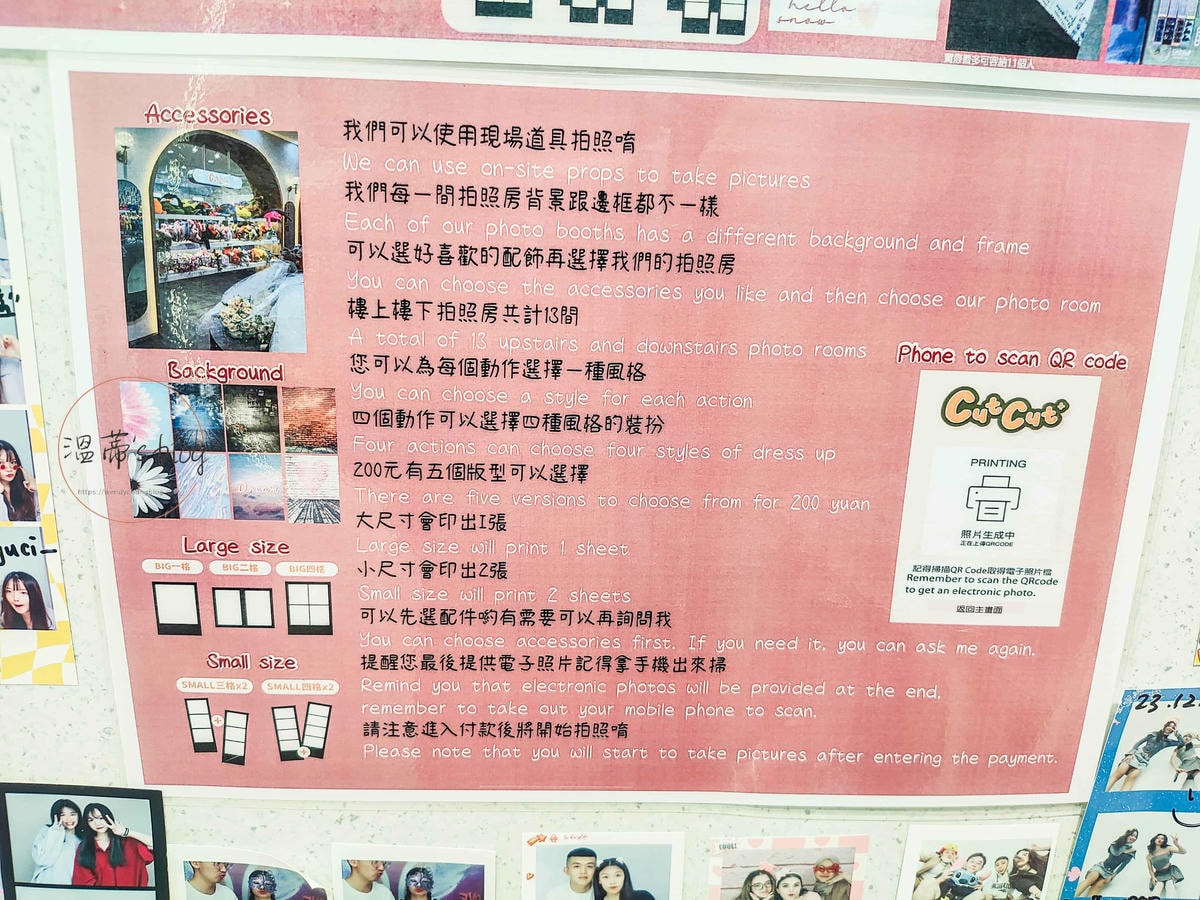 hello
snow
實際最多可容給11個人
Accessories
我們可以使用現場道具拍照唷
We can use on-site props to take pictures
我們每一間拍照房背景跟邊框都不一樣
Each of our photo booths has a different background and frame
可以選好喜歡的配飾再選擇我們的拍照房
You can choose the accessories you like and then choose our photo room
樓上樓下拍照房共計13間
A total of 13 upstairs and downstairs photo rooms
您可以為每個動作選擇一種風格
You can choose a style for each action
四個動作可以選擇四種風格的裝扮
Four actions can choose four styles of dress up
200元有五個版型可以選擇
There are five versions to choose from for 200 yuan
大尺寸會印出1張
Large size will print 1 sheet
小尺寸會印出2張
Small size will print 2 sheets
可以先選配件喲有需要可以再詢問我
You can choose accessories first. If you need it, you can ask me again.
提醒您最後提供電子照片記得拿手機出來掃
Remind you that electronic photos will be provided at the end,
remember to take out your mobile phone to scan.
請注意進入付款後將開始拍照唷
Please note that you will start to take pictures after entering the payment.
Background
Dream
溫蒂's blog
Large size
BIG一格
BIG二格
BIG四格
Small size
SMALL三格x2
SMALL四格x2
Phone to scan QR code
CutCut
PRINTING
照片生成中
正在上傳QRCODE
記得掃描QR Code取得電子照片檔
Remember to scan the QRcode
to get an electronic photo.
返回主畫面
23.12
COOL!